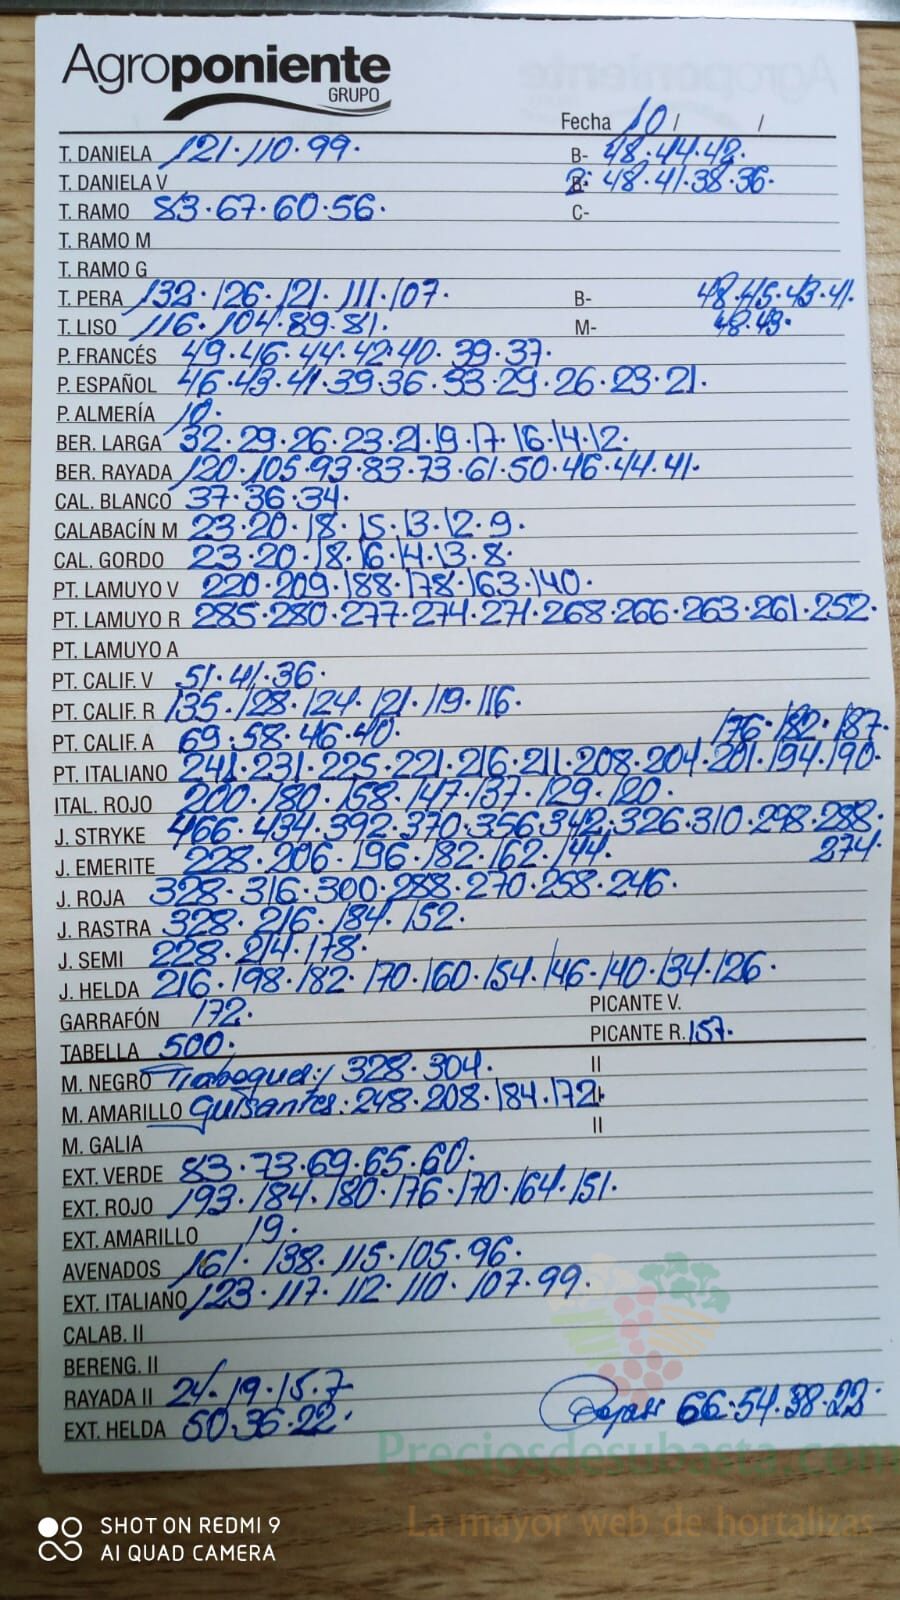 Agroponiente
GRUPO
Fecha 10 / /
T. DANIELA 121·110·99· B- 48·44·42·
T. DANIELA V B- 48·41·38·36·
T. RAMO 83·67·60·56· C-
T. RAMO M
T. RAMO G
T. PERA 132·126·121·111·107· B- 48·45·43·41·
T. LISO 116·104·89·81· M- 48·43·
P. FRANCÉS 49·46·44·42·40·39·37·
P. ESPAÑOL 46·43·41·39·36·33·29·26·23·21·
P. ALMERÍA 10·
BER. LARGA 32·29·26·23·21·19·17·16·14·12·
BER. RAYADA 120·105·93·83·73·61·50·46·44·41·
CAL. BLANCO 37·36·34·
CALABACÍN M 23·20·18·15·13·12·9·
CAL. GORDO 23·20·18·16·14·13·8·
PT. LAMUYO V 220·209·188·178·163·140·
PT. LAMUYO R 285·280·277·274·271·268·266·263·261·252·
PT. LAMUYO A
PT. CALIF. V 51·41·36·
PT. CALIF. R 135·128·124·121·119·116·
PT. CALIF. A 69·58·46·40· 176·182·187·
PT. ITALIANO 241·231·225·221·216·211·208·204·201·194·190·
ITAL. ROJO 200·180·158·147·137·129·120·
J. STRYKE 466·434·392·370·356·342·326·310·298·288·
J. EMERITE 228·206·196·182·162·144· 274·
J. ROJA 328·316·300·288·270·258·246·
J. RASTRA 328·216·184·152·
J. SEMI 228·214·178·
J. HELDA 216·198·182·170·160·154·146·140·134·126·
GARRAFÓN 172· PICANTE V.
TABELLA 500· PICANTE R. 157·
M. NEGRO 328·304· II
M. AMARILLO Guisantes: 248·208·184·172· II
M. GALIA II
EXT. VERDE 83·73·69·65·60·
EXT. ROJO 193·184·180·176·170·164·151·
EXT. AMARILLO 19·
AVENADOS 161·138·115·105·96·
EXT. ITALIANO 123·117·112·110·107·99·
CALAB. II
BERENG. II
RAYADA II 24·19·15·7
EXT. HELDA 50·36·22· 66·54·38·23·
Preciosdesubasta.com
La mayor web de hortalizas
SHOT ON REDMI 9
AI QUAD CAMERA